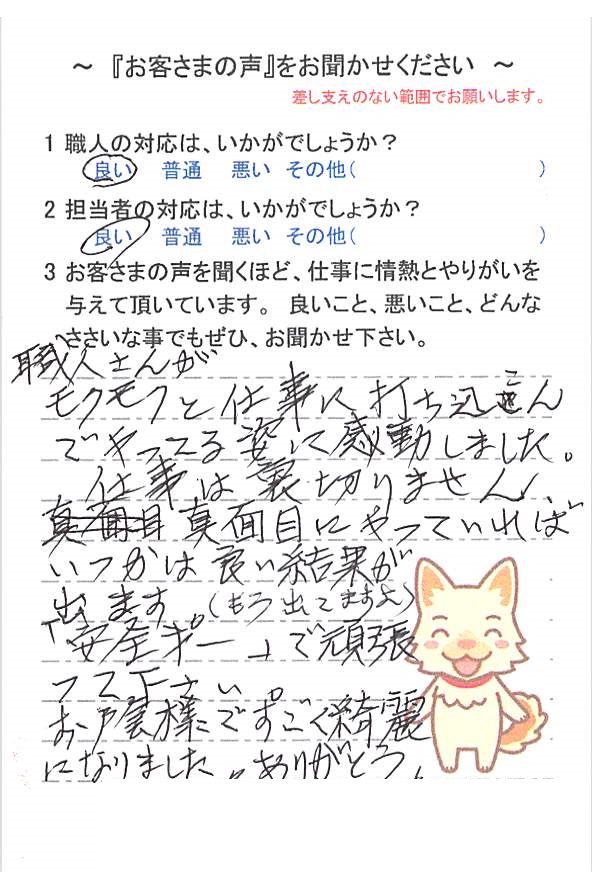 ～ 『お客さまの声』をお聞かせください ～
差し支えのない範囲でお願いします。
1 職人の対応は、いかがでしょうか？
良い 普通 悪い その他( )
2 担当者の対応は、いかがでしょうか？
良い 普通 悪い その他( )
3 お客さまの声を聞くほど、仕事に情熱とやりがいを
与えて頂いています。 良いこと、悪いこと、どんな
ささいな事でもぜひ、お聞かせ下さい。
職人さんが
モクモクと仕事に打ち込んで
でやってる姿に感動しました。
仕事は裏切りません、
真面目 真面目にやっていれば
いつかは良い結果が
出ます。(もう出てますよ)
「安全才一」で頑張
って下さい。
お陰様にですごく綺麗
になりました。ありがとう。